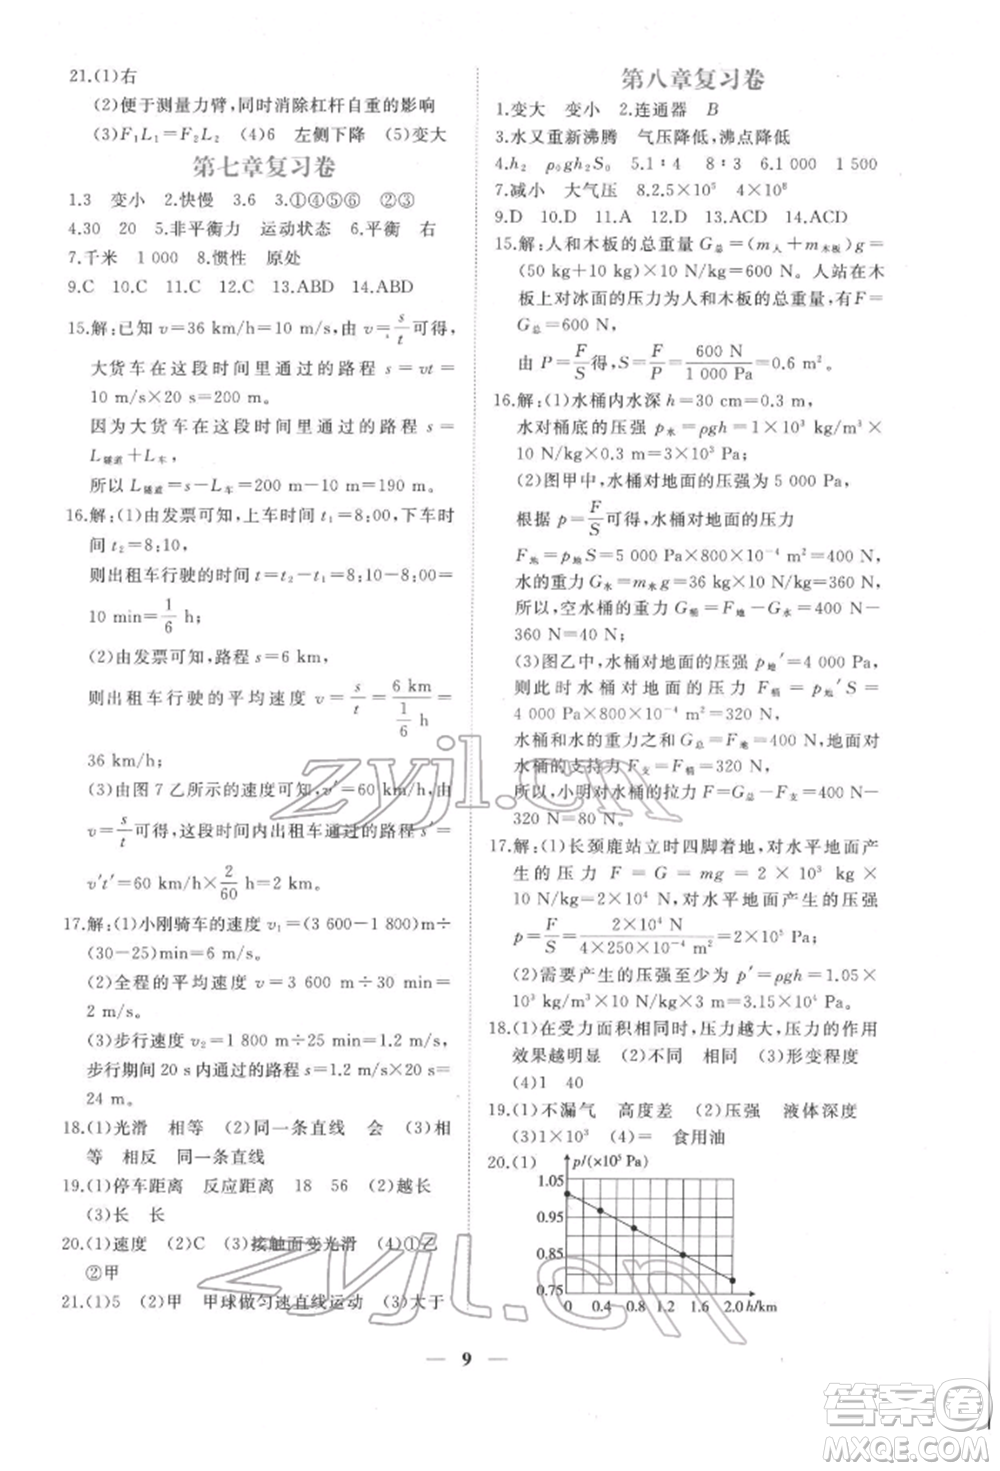 21.(1)右
(2)便于测量力臂,同时消除杠杆自重的影响
(3)F₁L₁=F₂L₂ (4)6 左侧下降 (5)变大
第七章复习卷
1.3 变小 2.快慢 3.6 3.①④⑤⑥ ②③
4.30 20 5.非平衡力 运动状态 6.平衡 右
7.千米 1 000 8.惯性 原处
9.C 10.C 11.C 12.C 13.ABD 14.ABD
15.解:已知 v=36 km/h=10 m/s,由 v=s/t可得,
大货车在这段时间里通过的路程 s=vt=
10 m/s×20 s=200 m。
因为大货车在这段时间里通过的路程 s=
L隧道+L车,
所以 L隧道=s-L车=200 m-10 m=190 m。
16.解:(1)由发票可知,上车时间 t₁=8:00,下车时
间 t₂=8:10,
则出租车行驶的时间 t=t₂-t₁=8:10-8:00=
10 min=1/6 h;
(2)由发票可知,路程 s=6 km,
则出租车行驶的平均速度 v=s/t=6 km/(1/6 h)=
36 km/h;
(3)由图 7 乙所示的速度可知,v′=60 km/h,由
v=s/t可得,这段时间内出租车通过的路程 s′=
v′t′=60 km/h×2/60 h=2 km。
17.解:(1)小刚骑车的速度 v₁=(3 600-1 800)m÷
(30-25)min=6 m/s。
(2)全程的平均速度 v=3 600 m÷30 min=
2 m/s。
(3)步行速度 v₂=1 800 m÷25 min=1.2 m/s,
步行期间 20 s内通过的路程 s=1.2 m/s×20 s=
24 m。
18.(1)光滑 相等 (2)同一条直线 会 (3)相
等 相反 同一条直线
19.(1)停车距离 反应距离 18 56 (2)越长
(3)长 长
20.(1)速度 (2)C (3)接触面变光滑 (4)①乙
②甲
21.(1)5 (2)甲 甲球做匀速直线运动 (3)大于
第八章复习卷
1.变大 变小 2.连通器 B
3.水又重新沸腾 气压降低,沸点降低
4.h₂ ρ₀gh₂S₀ 5.1:4 8:3 6.1 000 1 500
7.减小 大气压 8.2.5×10⁵ 4×10⁸
9.D 10.D 11.A 12.D 13.ACD 14.ACD
15.解:人和木板的总重量 G总=(m人+m木板)g=
(50 kg+10 kg)×10 N/kg=600 N。人站在木
板上对冰面的压力为人和木板的总重量,有 F=
G总=600 N,
由 P=F/S得,S=F/P=600 N/1 000 Pa=0.6 m²。
16.解:(1)水桶内水深 h=30 cm=0.3 m,
水对桶底的压强 p水=ρgh=1×10³ kg/m³×
10 N/kg×0.3 m=3×10³ Pa;
(2)图甲中,水桶对地面的压强为 5 000 Pa,
根据 p=F/S可得,水桶对地面的压力
F地=p地S=5 000 Pa×800×10⁻⁴ m²=400 N,
水的重力 G水=m水g=36 kg×10 N/kg=360 N,
所以,空水桶的重力 G桶=F地-G水=400 N-
360 N=40 N;
(3)图乙中,水桶对地面的压强 p地′=4 000 Pa,
则此时水桶对地面的压力 F桶=p地′S=
4 000 Pa×800×10⁻⁴ m²=320 N,
水桶和水的重力之和 G总=F地=400 N,地面对
水桶的支持力 F支=F桶=320 N,
所以,小明对水桶的拉力 F=G总-F支=400 N-
320 N=80 N。
17.解:(1)长颈鹿站立时四脚着地,对水平地面产
生的压力 F=G=mg=2×10³ kg×
10 N/kg=2×10⁴ N,对水平地面产生的压强
p=F/S=2×10⁴ N/(4×250×10⁻⁴ m²)=2×10⁵ Pa;
(2)需要产生的压强至少为 p′=ρgh=1.05×
10³ kg/m³×10 N/kg×3 m=3.15×10⁴ Pa。
18.(1)在受力面积相同时,压力越大,压力的作用
效果越明显 (2)不同 相同 (3)形变程度
(4)1 40
19.(1)不漏气 高度差 (2)压强 液体深度
(3)1×10³ (4)= 食用油
20.(1)
p/(×10⁵ Pa)
1.05
0.95
0.85
0.75
0 0.4 0.8 1.2 1.6 2.0 h/km
— 9 —
zyjl.cn
zyjl.cn
答案圈
MXQE.COM